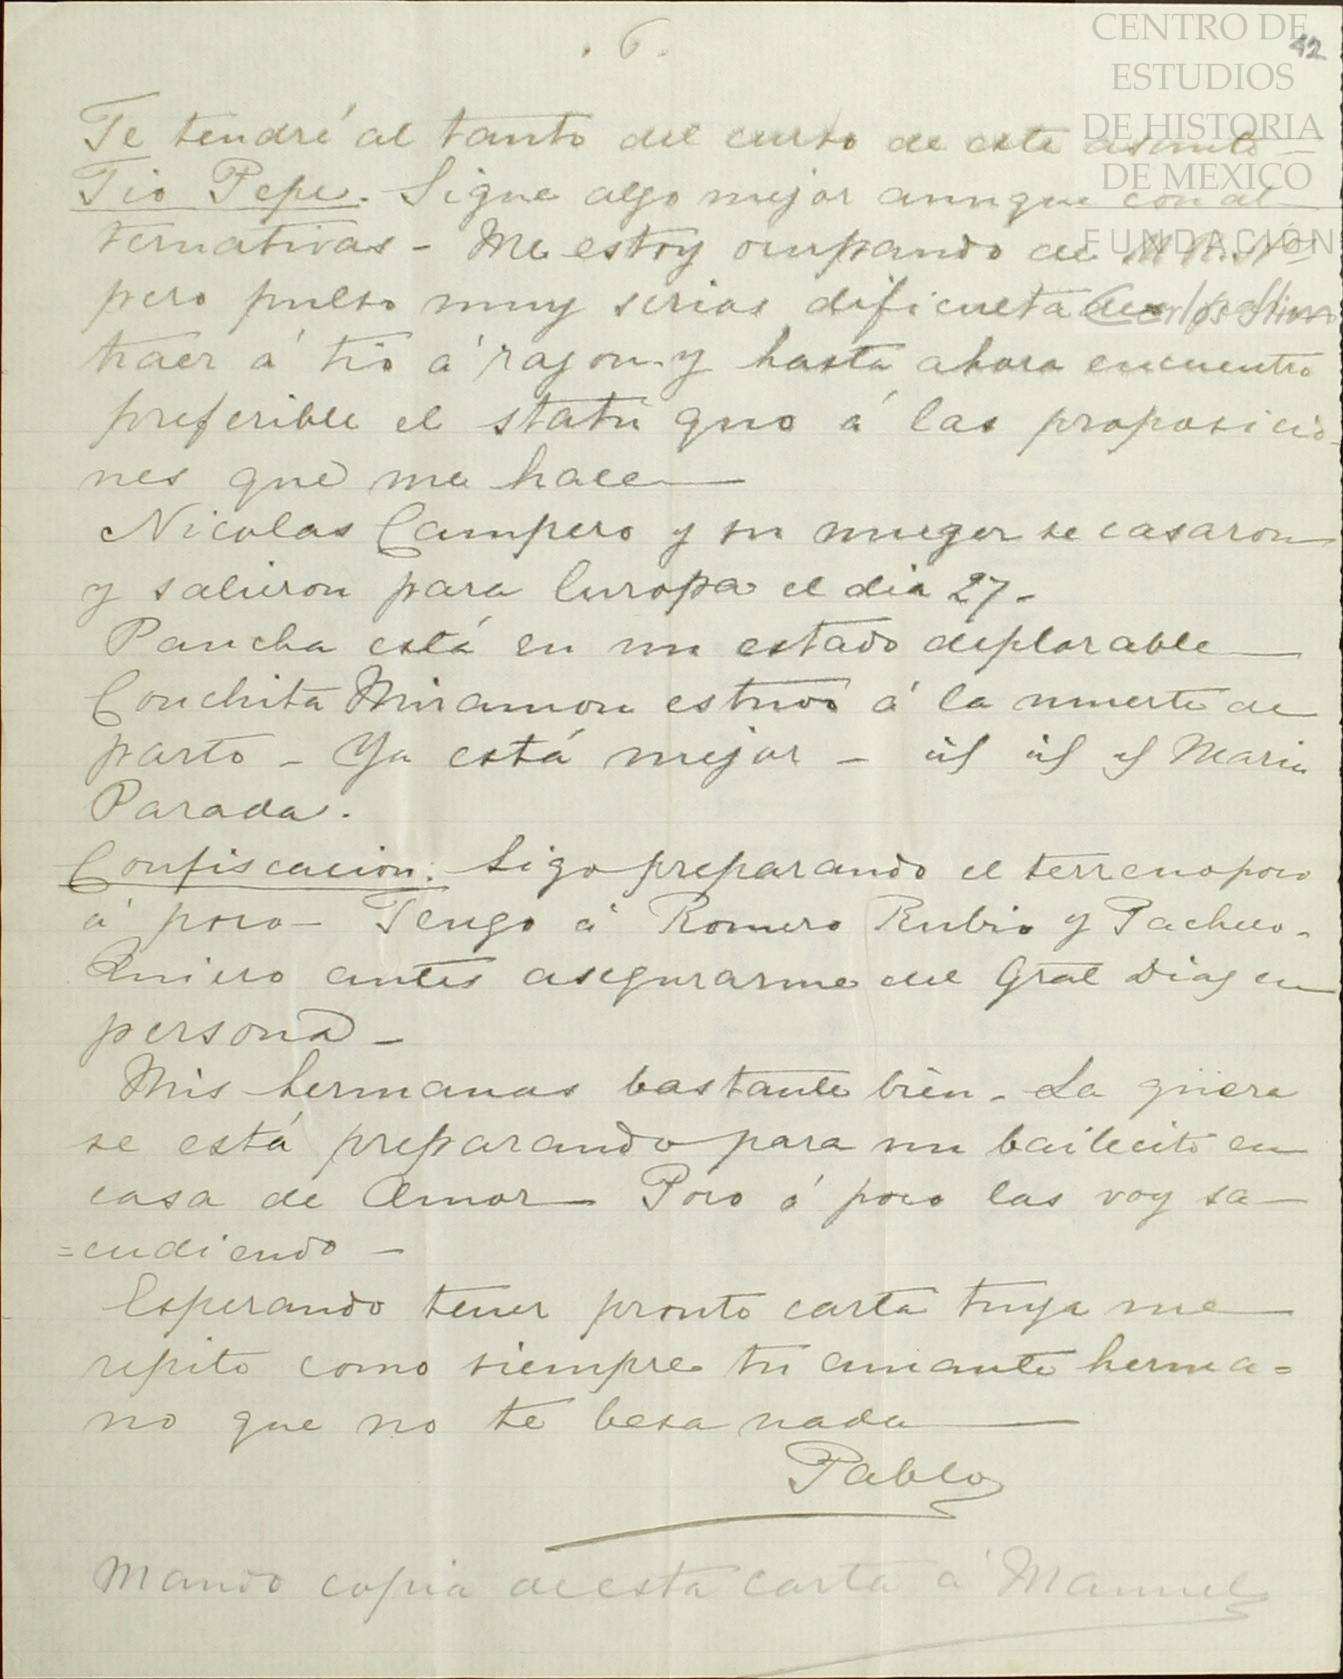 . 6 .
42
CENTRO DE
ESTUDIOS
DE HISTORIA
DE MEXICO
FUNDACIÓN
Carlos Slim
Te tendré al tanto del curso de este asunto
Tio Pepe. Sigue algo mejor aunque con al
ternativas - Me estoy ocupando de
pero pulso muy serias dificultades
traer á tio á razon y hasta ahora encuentro
preferible el statú quo á las proposicio-
nes que me hace
Nicolas Campero y su muger se casaron
y salieron para Europa el dia 27-
Pancha está en un estado deplorable
Conchita Miramon estuvo á la muerte de
parto - Ya está mejor - Maria
Parada.
Confiscacion: Sigo preparando el terreno poco
á poco - Tengo á Romero Rubio y Pacheco.
Quiero antes asegurarme del Gral Diaz en
persona -
Mis hermanas bastante bien - La güera
se está preparando para un bailecito en
casa de Amor - Poco á poco las voy sa-
=cudiendo -
Esperando tener pronto carta tuya me
repito como siempre tu amante herma=
no que no te besa nada
Pablo
Mando copia de esta carta á Manuel